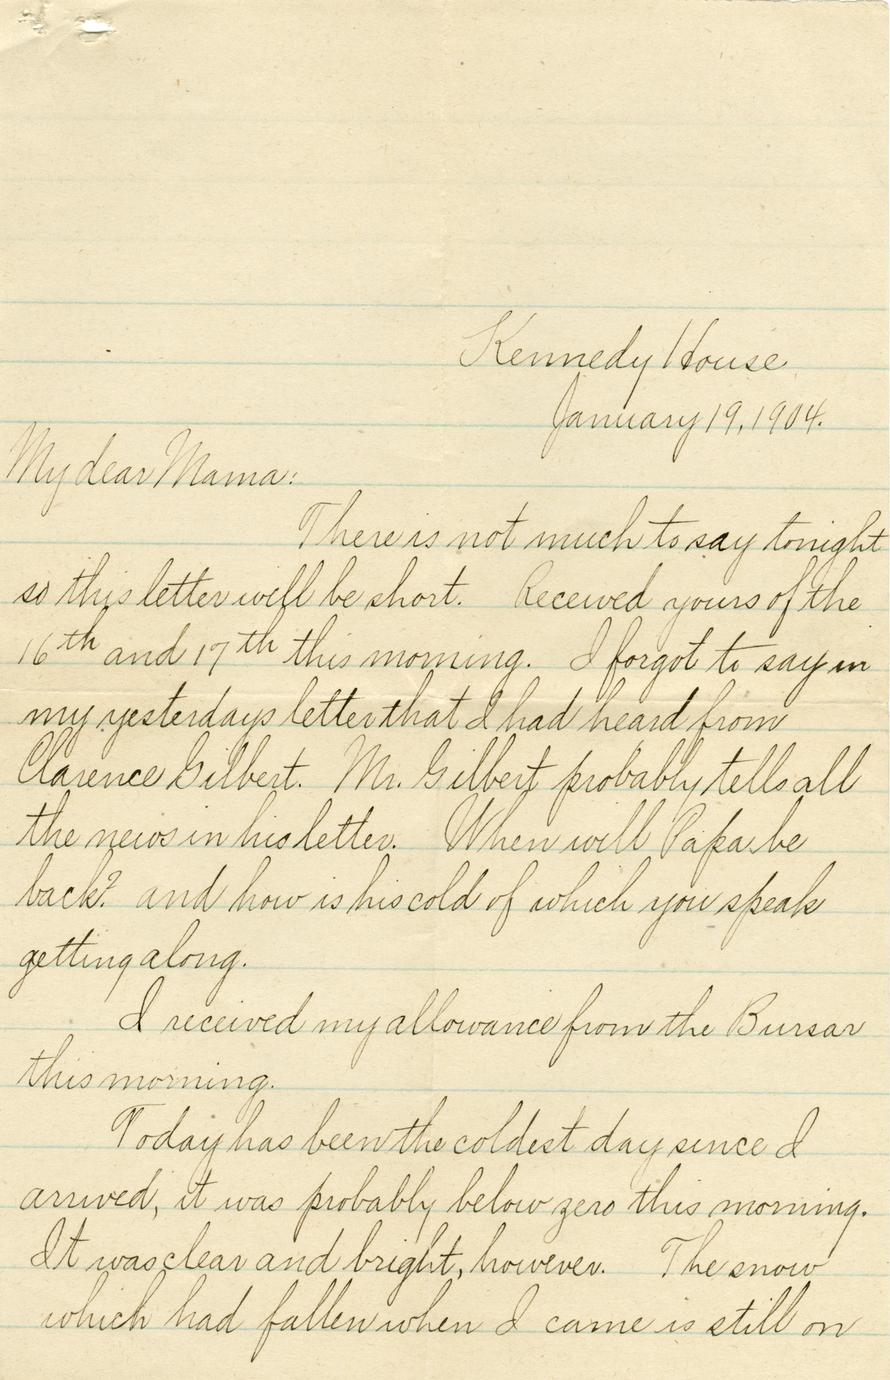 Kennedy House
January 19, 1904.
My dear Mama:
There is not much to say tonight
so this letter will be short. Received yours of the
16th and 17th this morning. I forgot to say in
my yesterdays letter that I had heard from
Clarence Gilbert. Mr. Gilbert probably tells all
the news in his letter. When will Papa be
back? and how is his cold of which you speak
getting along.
I received my allowance from the Bursar
this morning.
Today has been the coldest day since I
arrived, it was probably below zero this morning.
It was clear and bright, however. The snow
which had fallen when I came is still on